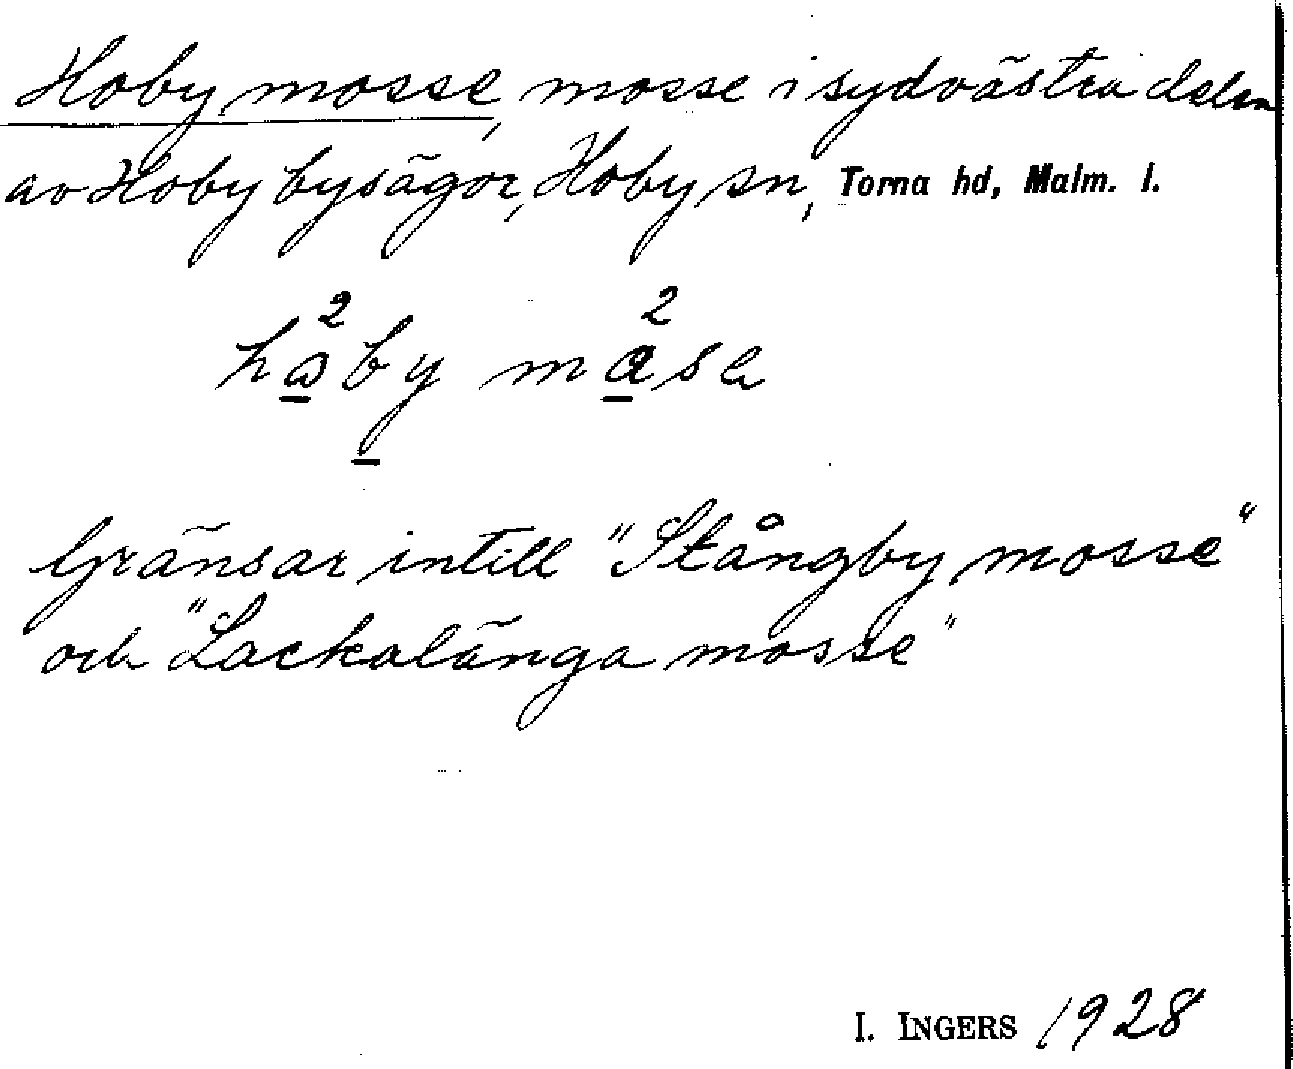 Hoby mosse, mosse i sydvästra delen
av Hoby bysägor, Hoby sn, Torna hd, Malm. l.
Gränsar intill "Stångby mosse"
och "Lackalänga mosse"
I. INGERS 1928